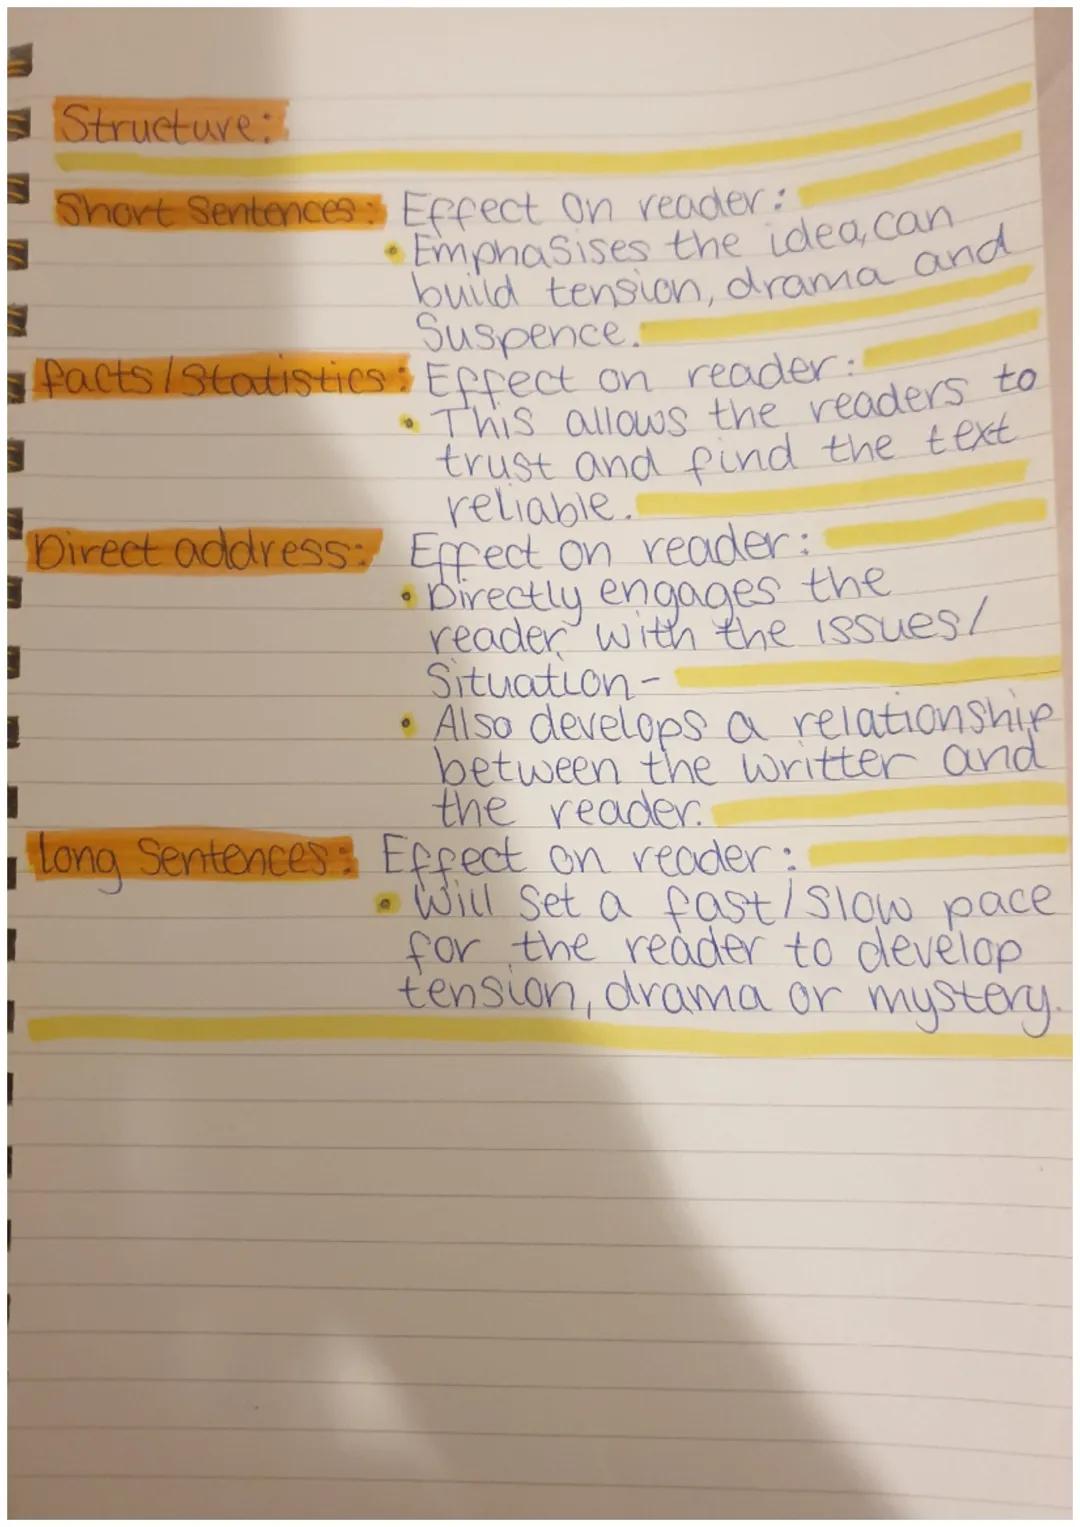 Structure:
Short Sentences: Effect on reader:
• Emphasises the idea, can
build tension, drama and
Suspence.
facts/statistics: Effect on reader:
• This allows the readers to
trust and find the text
reliable.
Direct address: Effect on reader:
• Directly engages the
reader with the issues/
Situation-
• Also develops a relationship
between the writter and
the reader.
Long Sentences: Effect on reader:
• Will Set a fast/slow pace
for the reader to develop
tension, drama or mystery.